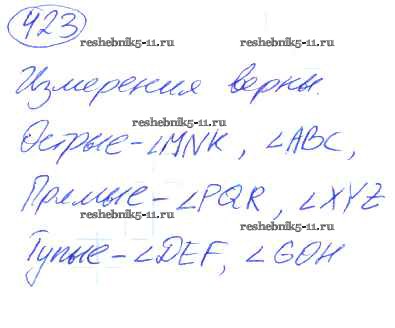 423
reshebnik5-11.ru reshebnik5-11.ru
Измерения верны.
reshebnik5-11.ru
Острые - ∠MNK, ∠ABC,
Прямые - ∠PQR, ∠XYZ
reshebnik5-11.ru reshebnik5-11.ru
Тупые - ∠DEF, ∠GOH